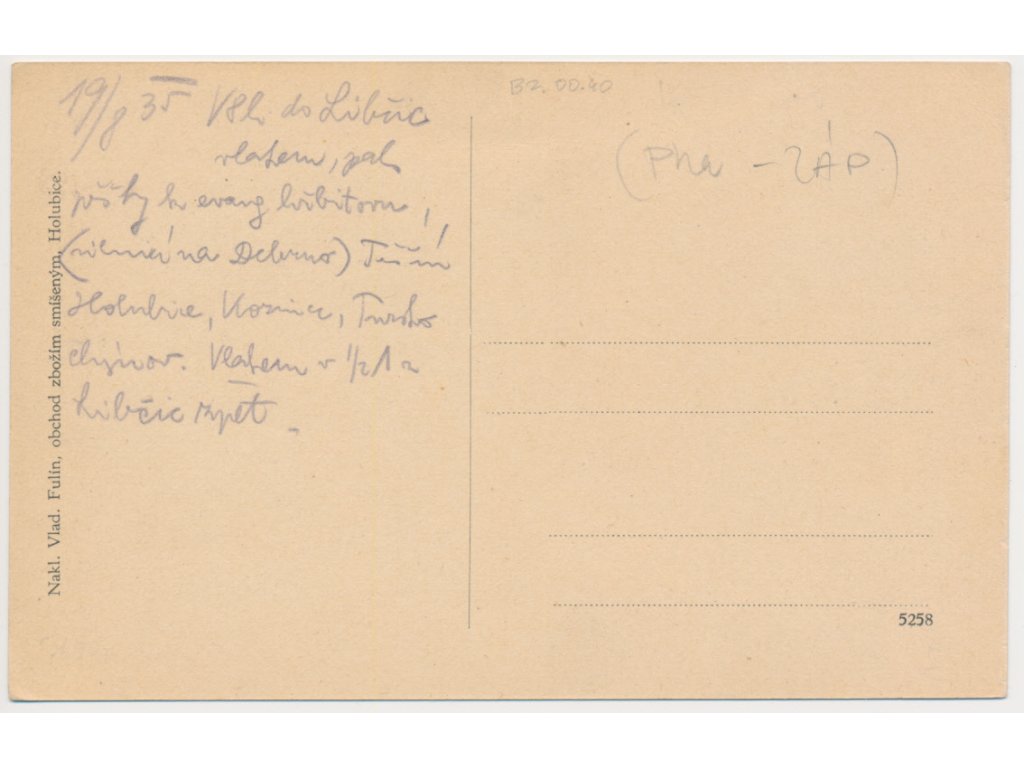 19/8 35 do Libčic
vlakem, pak
pěšky k evang hřbitovu,
(silnicí na Debrno) Tuším
Holubice, Kozinec, Tursko
chýnov. Vlakem v 1/2 1 z
Libčic zpět
B2.00.40
(Pha - ZÁP)
5258
Nakl. Vlad. Fulín, obchod zbožím smíšeným, Holubice.